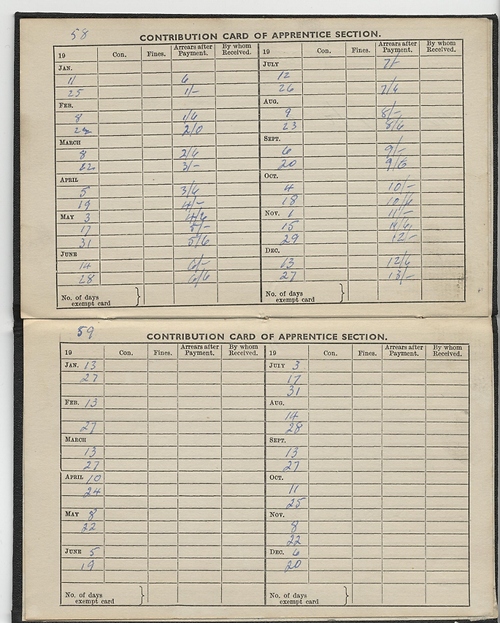 58
CONTRIBUTION CARD OF APPRENTICE SECTION.
19 Con. Fines. Arrears after Payment. By whom Received.
JAN.
11 6
25 1/-
FEB.
8 1/6
22 2/0
MARCH
8 2/6
22 3/-
APRIL
5 3/6
19 4/-
MAY 3 4/6
17 5/-
31 5/6
JUNE
14 6/-
28 6/6
No. of days exempt card
19 Con. Fines. Arrears after Payment. By whom Received.
JULY 7/-
12
26 7/6
AUG.
9 8/-
23 8/6
SEPT.
6 9/-
20 9/6
OCT.
4 10/-
18 10/6
NOV. 1 11/-
15 11/6
29 12/-
DEC.
13 12/6
27 13/-
No. of days exempt card
59
CONTRIBUTION CARD OF APPRENTICE SECTION.
19 Con. Fines. Arrears after Payment. By whom Received.
JAN. 13
27
FEB. 13
27
MARCH
13
27
APRIL 10
24
MAY 8
22
JUNE 5
19
No. of days exempt card
19 Con. Fines. Arrears after Payment. By whom Received.
JULY 3
17
31
AUG.
14
28
SEPT.
13
27
OCT.
11
25
NOV.
8
22
DEC. 6
20
No. of days exempt card